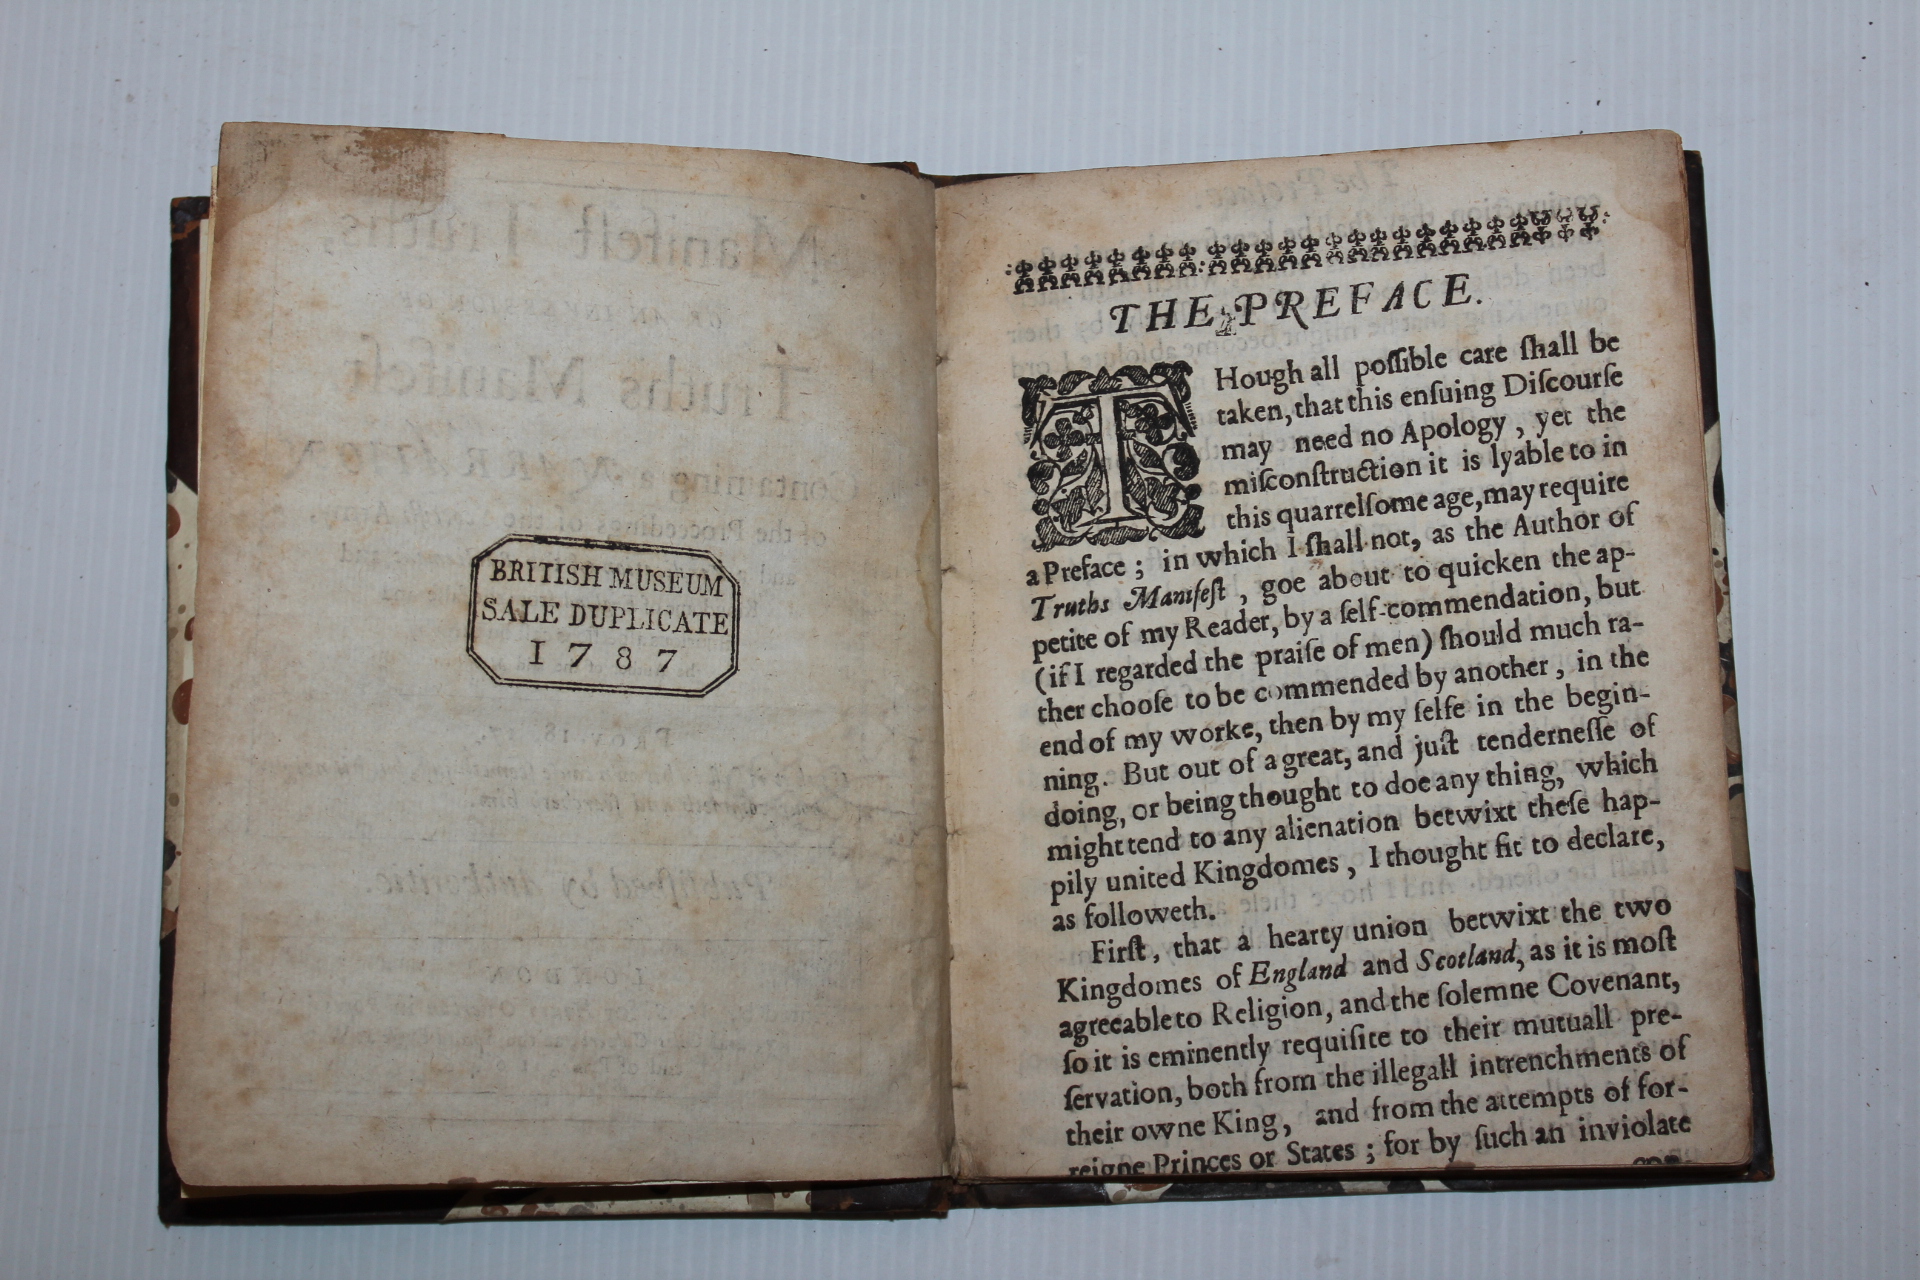 BRITISH MUSEUM
SALE DUPLICATE
1787
THE PREFACE.
THough all poſſible care ſhall be
taken, that this enſuing Diſcourſe
may need no Apology, yet the
miſconſtruction it is lyable to in
this quarrelſome age, may require
a Preface; in which I ſhall not, as the Author of
Truths Manifeſt, goe about to quicken the ap-
petite of my Reader, by a ſelf-commendation, but
(if I regarded the praiſe of men) ſhould much ra-
ther chooſe to be commended by another, in the
end of my worke, then by my ſelfe in the begin-
ning. But out of a great, and juſt tenderneſſe of
doing, or being thought to doe any thing, which
might tend to any alienation betwixt theſe hap-
pily united Kingdomes, I thought fit to declare,
as followeth.
Firſt, that a hearty union betwixt the two
Kingdomes of England and Scotland, as it is moſt
agreeable to Religion, and the ſolemne Covenant,
ſo it is eminently requiſite to their mutuall pre-
ſervation, both from the illegall intrenchments of
their owne King, and from the attempts of for-
reigne Princes or States; for by ſuch an inviolate
con-